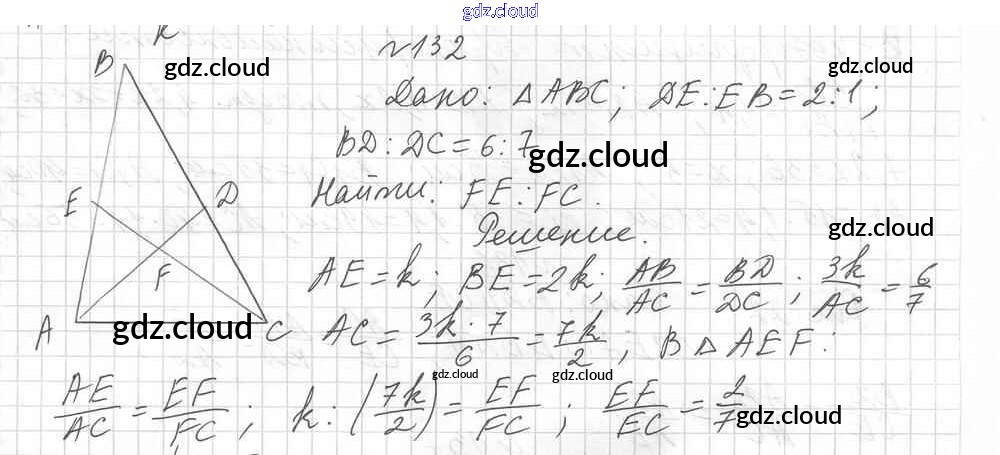 gdz.cloud
K
№132
B
gdz.cloud
Дано: △ABC; DE:EB=2:1;
BD:DC=6:7
gdz.cloud
Найти: FE:FC.
E
D
Решение.
gdz.cloud
F
AE=k; BE=2k; AB/AC = BD/DC; 3k/AC = 6/7
A
gdz.cloud
C
AC = 3k·7/6 = 7k/2; В △AEF:
gdz.cloud
gdz.cloud
AE/AC = EF/FC; k:(7k/2) = EF/FC; EF/EC = 2/7
gdz.cloud